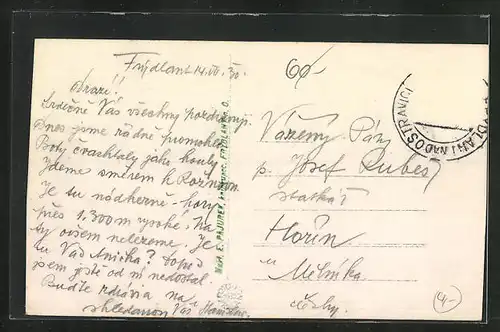 Frýdlant 14.VII.30.
Drazí!
Srdečně Vás všechny pozdravuji.
Dnes jsme řádně promokli
Boty crachtaly jako kouly.
Jdeme směrem k Rožnovu
Je tu nádherně - hory
přes 1.300 m vysoké. Na
ty ovšem nelezeme. Je
tu Vaď Anička? Dopis
jsem ještě od ní nedostal.
Buďte zdrávi a na
shledanou Váš Stanislav.
NAKL. E. PAJUREK, FRÝDLANT N. O.
60-
FRÝDLANT NAD OSTRAVICÍ
Vážený Pán
p. Josef Rubeš
statkář
Hořín
u Mělníka
Čechy.
4-